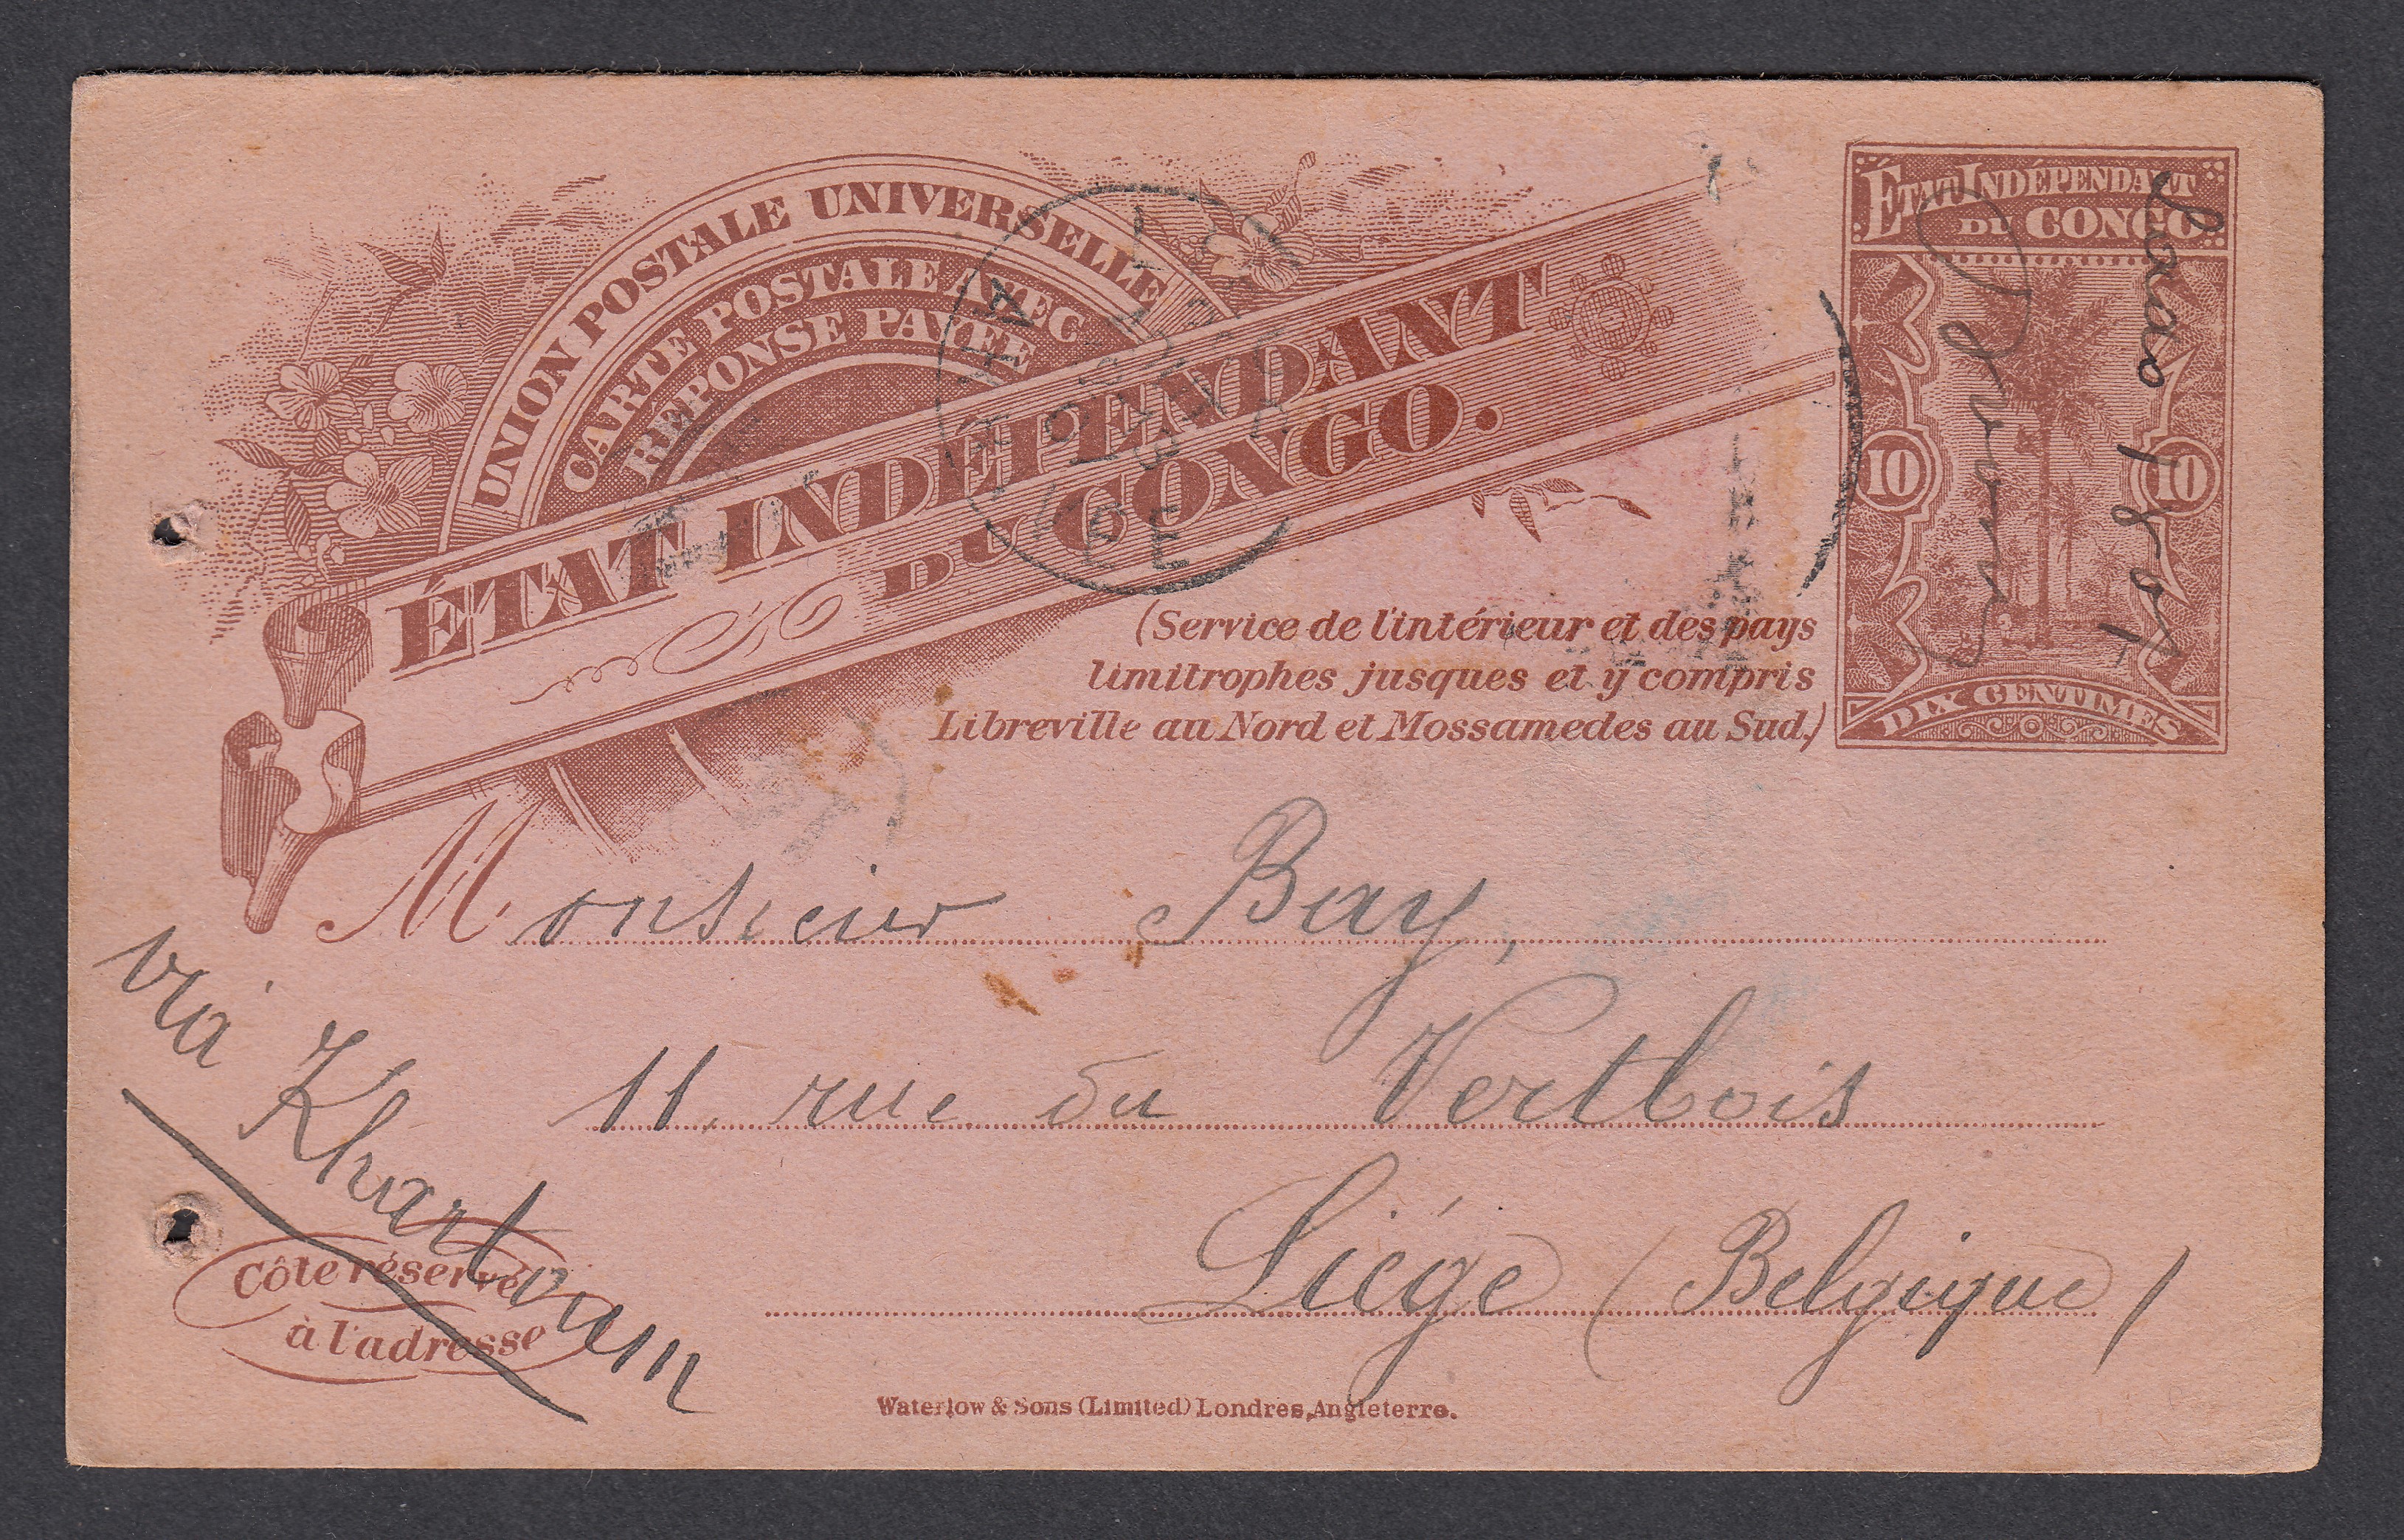 UNION POSTALE UNIVERSELLE
CARTE POSTALE AVEC
RÉPONSE PAYÉE
ÉTAT INDÉPENDANT
DU CONGO.
ÉTAT INDÉPENDANT
DU CONGO
10 10
DIX CENTIMES
(Service de l'intérieur et des pays
limitrophes jusques et y compris
Libreville au Nord et Mossamedes au Sud.)
Monsieur Bay,
11, rue du Vertbois
Liége (Belgique)
via Khartoum
Côté réservé
à l'adresse
Waterlow & Sons (Limited) Londres, Angleterre.